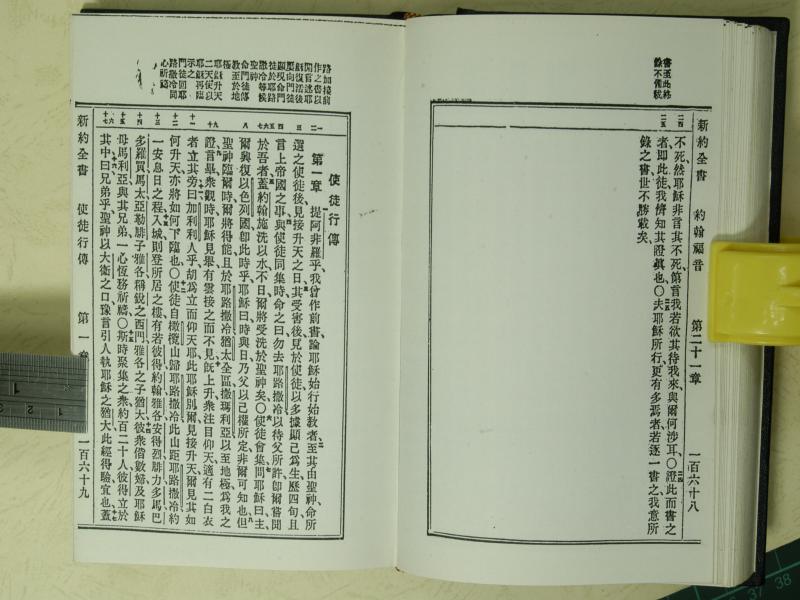 新約全書 約翰福音 第二十一章 一百六十八
書至此終
二四
二五
不死、然耶穌非言其不死、第言我若欲其待我來、與爾何涉耳、○證此而書之
者即此徒、我儕知其證眞也、○夫耶穌所行、更有多焉者、若逐一書之、我意所
錄之書、世不勝載矣、
路加接前
作之書以
復活後
門徒
於耶路
撒冷等候
聖神
命門徒傳
教至於地
極
耶穌升天
二天使以
耶穌再臨
示之
門徒回耶
路撒冷同
心祈禱
使徒行傳
第一章 提阿非羅乎、我曾作前書、論耶穌始行始教者、至其由聖神命所
選之使徒後、見接升天之日、其受害後、見於使徒、以多據顯己爲生、歷四旬、且
言上帝國之事、與使徒同集時、命之曰、勿去耶路撒冷、以待父所許、卽爾嘗聞
於吾者、蓋約翰施洗以水、不日爾將受洗於聖神矣、○使徒會集、問耶穌曰、主、
爾興復以色列國、卽此時乎、耶穌曰、時與日、乃父以己權所定、非爾可知也、但
聖神臨爾時、爾將得能、且於耶路撒冷、猶太全區、撒瑪利亞、以至地極、爲我之
證、言畢、衆觀時、耶穌見舉、有雲接之而不見、旣上升、衆注目仰天、適有二白衣
者、立其旁曰、加利利人乎、胡爲立而仰天耶、此耶穌別爾見接升天、爾見其如
何升天、亦將如何下臨也、○使徒自橄欖山歸耶路撒冷、此山距耶路撒冷約
一安息日之程、入城則登所居之樓、有若彼得約翰雅各安得烈腓力多馬巴
多羅買馬太亞勒腓子雅各稱銳之西門雅各之子猶大、彼衆偕數婦及耶穌
母馬利亞、與其兄弟、一心恆務祈禱、○斯時聚集之衆、約百二十人、彼得立於
其中曰、兄弟乎、聖神以大衛之口、豫言引人執耶穌之猶大、此經得驗宜也、蓋
新約全書 使徒行傳 第一章 一百六十九